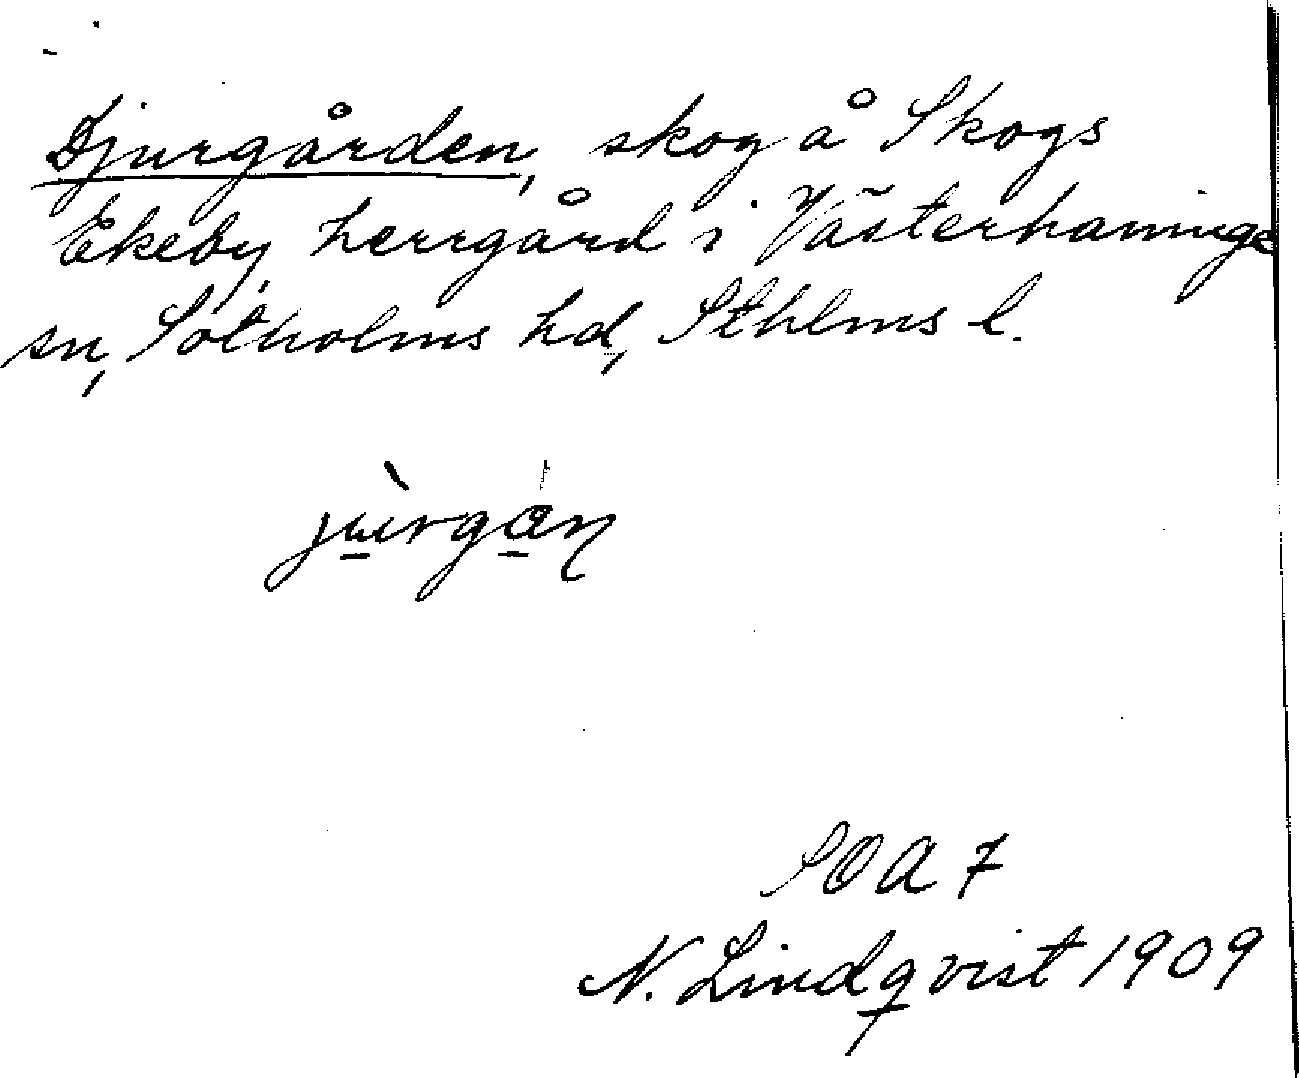 Djurgården, skog å Skogs
Ekeby, herrgård i Västerhaninge
sn, Sotholms hd, Sthlms l.
jùrgán
SOA 7
N. Lindqvist 1909